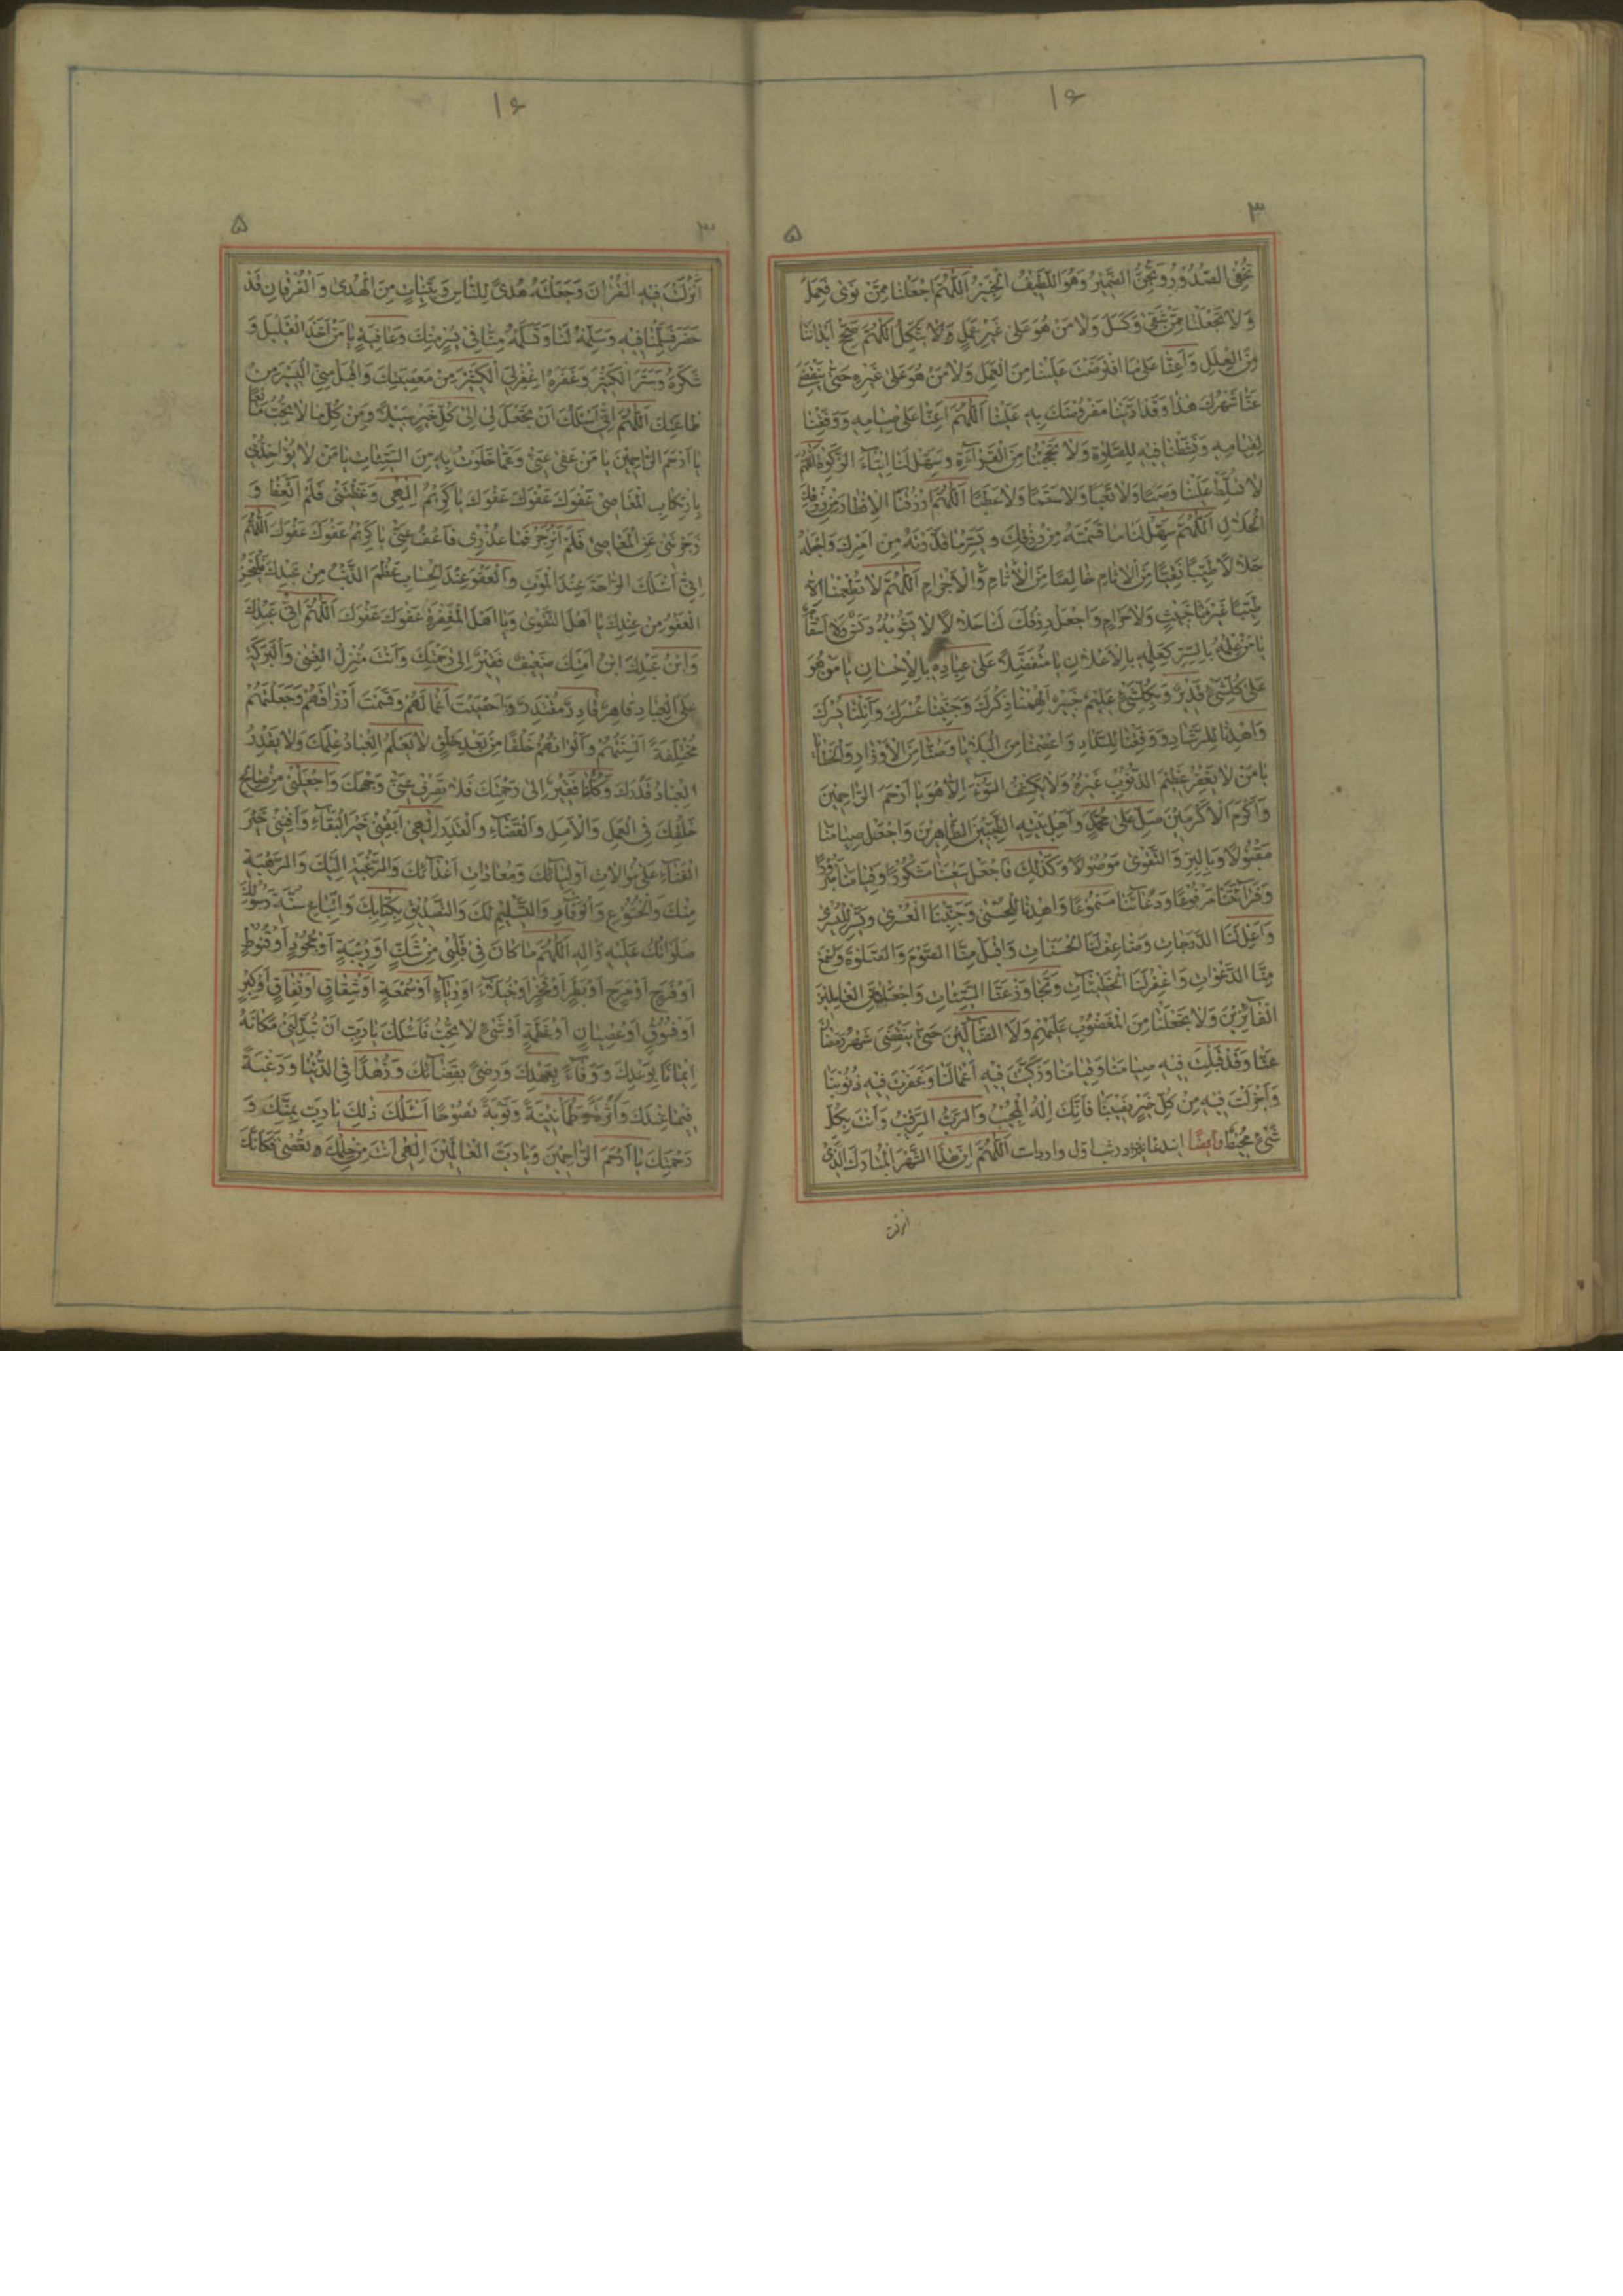 ١۶
٣
۵
تُخْفِي الصُّدُورُ وَتُجِنُّ الضَّمِيرُ وَهُوَ اللَّطِيفُ الْخَبِيرُ اَللّٰهُمَّ اجْعَلْنا مِمَّنْ نَوىٰ فَعَمِلَ
وَلا تَجْعَلْنا مِمَّنْ شَقِيَ وَكَسِلَ وَلا مَنْ هُوَ عَلىٰ غَيْرِ عَمَلٍ يَتَّكِلُ اَللّٰهُمَّ صَحِّحْ اَبْدانَنا
مِنَ الْعِلَلِ وَاَعِنّا عَلىٰ مَا افْتَرَضْتَ عَلَيْنا مِنَ الْعَمَلِ وَلا مَنْ هُوَ عَلىٰ غَيْرِهِ حَتّىٰ يَنْقَضِيَ
عَنّا شَهْرُكَ هٰذا وَقَدْ اَدَّيْنا مَفْرُوضَكَ بِهِ عَلَيْنا اَللّٰهُمَّ اَعِنّا عَلىٰ صِيامِهِ وَوَفِّقْنا
لِقِيامِهِ وَنَشِّطْنا فِيهِ لِلصَّلوٰةِ وَلا تَحْجُبْنا مِنَ الْقِرآءَةِ وَسَهِّلْ لَنا ايتآءَ الزَّكوٰةِ اَللّٰهُمَّ
لا تُسَلِّطْ عَلَيْنا وَصَبًا وَلا تَعَبًا وَلا سَقَمًا وَلا عَطَبًا اَللّٰهُمَّ ارْزُقْنَا الْاِفْطارَ مِنْ رِزْقِكَ
الْحَلالِ اَللّٰهُمَّ سَهِّلْ لَنا ما قَسَمْتَهُ مِنْ رِزْقِكَ وَيَسِّرْ ما قَدَّرْتَهُ مِنْ اَمْرِكَ وَاجْعَلْهُ
حَلالًا طَيِّبًا نَقِيًّا مِنَ الْاٰثامِ خالِصًا مِنَ الْاٰثامِ وَالْاَجْرامِ اَللّٰهُمَّ لا تُطْعِمْنا اِلّا
طَيِّبًا غَيْرَ خَبِيثٍ وَلا حَرامٍ وَاجْعَلْ رِزْقَكَ لَنا حَلالًا لا يَشُوبُهُ دَنَسٌ وَلا اَسْقامٌ
يا مَنْ عِلْمُهُ بِالسِّرِّ كَعِلْمِهِ بِالْاِعْلانِ يا مُتَفَضِّلًا عَلىٰ عِبادِهِ بِالْاِحْسانِ يا مَنْ هُوَ
عَلىٰ كُلِّ شَيْءٍ قَدِيرٌ وَبِكُلِّ شَيْءٍ عَلِيمٌ خَبِيرٌ اَلْهِمْنا ذِكْرَكَ وَجَنِّبْنا عُسْرَكَ وَاَنِلْنا يُسْرَكَ
وَاهْدِنا لِلرَّشادِ وَوَفِّقْنا لِلسَّدادِ وَاعْصِمْنا مِنَ الْبَلايا وَصُنّا مِنَ الْاَوْزارِ وَالْخَطايا
يا مَنْ لا يَغْفِرُ عَظِيمَ الذُّنُوبِ غَيْرُهُ وَلا يَكْشِفُ السُّوٓءَ اِلّا هُوَ يا اَرْحَمَ الرّاحِمِينَ
وَاَكْرَمَ الْاَكْرَمِينَ صَلِّ عَلىٰ مُحَمَّدٍ وَاَهْلِ بَيْتِهِ الطَّيِّبِينَ الطّاهِرِينَ وَاجْعَلْ صِيامَنا
مَقْبُولًا وَبِالْبِرِّ وَالتَّقْوىٰ مَوْصُولًا وَكَذٰلِكَ فَاجْعَلْ سَعْيَنا مَشْكُورًا وَقِيامَنا مَبْرُورًا
وَقِرآءَتَنا مَرْفُوعًا وَدُعآئَنا مَسْمُوعًا وَاهْدِنا لِلْحُسْنىٰ وَجَنِّبْنَا الْعُسْرىٰ وَيَسِّرْنا لِلْيُسْرىٰ
وَاَعْلِ لَنَا الدَّرَجاتِ وَضاعِفْ لَنَا الْحَسَناتِ وَاقْبَلْ مِنَّا الصَّوْمَ وَالصَّلوٰةَ وَاسْمَعْ
مِنَّا الدَّعَواتِ وَاغْفِرْ لَنَا الْخَطِيئاتِ وَتَجاوَزْ عَنَّا السَّيِّئاتِ وَاجْعَلْنا مِنَ الْعامِلِينَ
الْفآئِزِينَ وَلا تَجْعَلْنا مِنَ الْمَغْضُوبِ عَلَيْهِمْ وَلَا الضّآلِّينَ حَتّىٰ يَنْقَضِيَ شَهْرُ رَمَضانَ
عَنّا وَقَدْ قَبِلْتَ فِيهِ صِيامَنا وَقِيامَنا وَزَكَّيْتَ فِيهِ اَعْمالَنا وَغَفَرْتَ فِيهِ ذُنُوبَنا
وَاَجْزَلْتَ فِيهِ مِنْ كُلِّ خَيْرٍ نَصِيبَنا فَاِنَّكَ اِلٰهُ الْمُجِيبُ وَالرَّبُّ الرَّقِيبُ وَاَنْتَ بِكُلِّ
شَيْءٍ مُحِيطٌ وايضًا در شب اول وارد است اَللّٰهُمَّ اِنَّ هٰذَا الشَّهْرَ الْمُبارَكَ الَّذِي
انزلت
١۶
٣
۵
اَنْزَلْتَ فِيهِ الْقُرْاٰنَ وَجَعَلْتَهُ هُدىً لِلنّاسِ وَبَيِّناتٍ مِنَ الْهُدىٰ وَالْفُرْقانِ قَدْ
حَضَرَ فَسَلِّمْنا فِيهِ وَسَلِّمْهُ لَنا وَتَسَلَّمْهُ مِنّا فِي يُسْرٍ مِنْكَ وَعافِيَةٍ يا مَنْ اَخَذَ الْقَلِيلَ وَ
شَكَرَهُ وَسَتَرَ الْكَثِيرَ وَغَفَرَهُ اغْفِرْ لِيَ الْكَثِيرَ مِنْ مَعْصِيَتِكَ وَاقْبَلْ مِنِّي الْيَسِيرَ مِنْ
طاعَتِكَ اَللّٰهُمَّ اِنِّي اَسْئَلُكَ اَنْ تَجْعَلَ لِي اِلىٰ كُلِّ خَيْرٍ سَبِيلًا وَمِنْ كُلِّ ما لا تُحِبُّ مانِعًا
يا اَرْحَمَ الرّاحِمِينَ يا مَنْ عَفىٰ عَنِّي وَعَمّا خَلَوْتُ بِهِ مِنَ السَّيِّئاتِ يا مَنْ لا يُؤاخِذُنِي
بِارْتِكابِ الْمَعاصِي عَفْوَكَ عَفْوَكَ عَفْوَكَ يا كَرِيمُ اِلٰهِي وَعَظْتَنِي فَلَمْ اَتَّعِظْ وَ
زَجَرْتَنِي عَنِ الْمَعاصِي فَلَمْ اَنْزَجِرْ فَما عُذْرِي فَاعْفُ عَنِّي يا كَرِيمُ عَفْوَكَ عَفْوَكَ اَللّٰهُمَّ
اِنِّي اَسْئَلُكَ الرّاحَةَ عِنْدَ الْمَوْتِ وَالْعَفْوَ عِنْدَ الْحِسابِ عَظُمَ الذَّنْبُ مِنْ عَبْدِكَ فَلْيَحْسُنِ
الْعَفْوُ مِنْ عِنْدِكَ يا اَهْلَ التَّقْوىٰ وَيا اَهْلَ الْمَغْفِرَةِ عَفْوَكَ عَفْوَكَ اَللّٰهُمَّ اِنِّي عَبْدُكَ
وَابْنُ عَبْدِكَ ابْنُ اَمَتِكَ ضَعِيفٌ فَقِيرٌ اِلىٰ رَحْمَتِكَ وَاَنْتَ مُنْزِلُ الْغِنىٰ وَالْبَرَكَةِ
عَلَى الْعِبادِ قاهِرٌ قادِرٌ مُقْتَدِرٌ وَاَحْصَيْتَ اَعْمالَهُمْ وَقَسَمْتَ اَرْزاقَهُمْ وَجَعَلْتَهُمْ
مُخْتَلِفَةً اَلْسِنَتُهُمْ وَاَلْوانُهُمْ خَلْقًا مِنْ بَعْدِ خَلْقٍ لا يَعْلَمُ الْعِبادُ عِلْمَكَ وَلا يَقْدِرُ
الْعِبادُ قَدْرَكَ وَكُلُّنا فَقِيرٌ اِلىٰ رَحْمَتِكَ فَلا تَصْرِفْ عَنِّي وَجْهَكَ وَاجْعَلْنِي مِنْ صالِحِ
خَلْقِكَ فِي الْعَمَلِ وَالْاَمَلِ وَالْقَضآءِ وَالْقَدَرِ اِلٰهِي اَبْقِنِي خَيْرَ الْبَقآءِ وَاَفْنِنِي خَيْرَ
الْفَنآءِ عَلىٰ مُوالاتِ اَوْلِيآئِكَ وَمُعاداتِ اَعْدآئِكَ وَالرَّغْبَةِ اِلَيْكَ وَالرَّهْبَةِ
مِنْكَ وَالْخُشُوعِ وَالْوَقارِ وَالتَّسْلِيمِ لَكَ وَالتَّصْدِيقِ بِكِتابِكَ وَاتِّباعِ سُنَّةِ رَسُولِكَ
صَلَواتُكَ عَلَيْهِ وَاٰلِهِ اَللّٰهُمَّ ما كانَ فِي قَلْبِي مِنْ شَكٍّ اَوْ رِيبَةٍ اَوْ جُحُودٍ اَوْ قُنُوطٍ
اَوْ فَرَحٍ اَوْ مَرَحٍ اَوْ بَطَرٍ اَوْ فَخْرٍ اَوْ خُيَلآءَ اَوْ رِيآءٍ اَوْ سُمْعَةٍ اَوْ شِقاقٍ اَوْ نِفاقٍ اَوْ كُفْرٍ
اَوْ فُسُوقٍ اَوْ عِصْيانٍ اَوْ غَفْلَةٍ اَوْ شَيْءٍ لا تُحِبُّ فَاَسْئَلُكَ يا رَبِّ اَنْ تُبَدِّلَنِي مَكانَهُ
اِيمانًا بِوَعْدِكَ وَوَفآءً بِعَهْدِكَ وَرِضىً بِقَضآئِكَ وَزُهْدًا فِي الدُّنْيا وَرَغْبَةً
فِيما عِنْدَكَ وَاَثَرَةً وَطُمَأْنِينَةً وَتَوْبَةً نَصُوحًا اَسْئَلُكَ ذٰلِكَ يا رَبِّ بِمَنِّكَ وَ
رَحْمَتِكَ يا اَرْحَمَ الرّاحِمِينَ وَيا رَبَّ الْعالَمِينَ اِلٰهِي اَنْتَ مِنْ حِلْمِكَ تُعْصىٰ فَكَاَنَّكَ